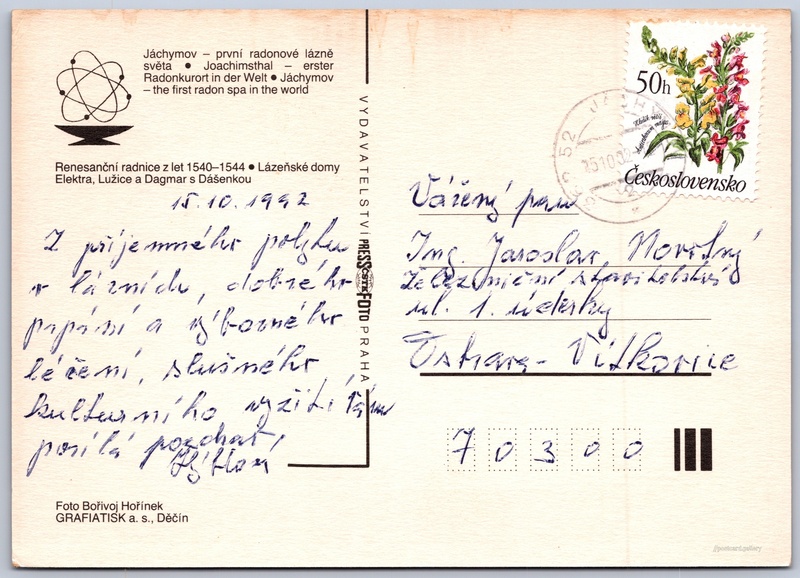 Jáchymov – první radonové lázně
světa ● Joachimsthal – erster
Radonkurort in der Welt ● Jáchymov
– the first radon spa in the world
Renesanční radnice z let 1540–1544 ● Lázeňské domy
Elektra, Lužice a Dagmar s Dášenkou
15.10.1992
Z příjemného pobytu
v lázních, dobrého
a výborného
léčení, slušného
kulturního vyžití Vám
posílá pozdrav,
Foto Bořivoj Hořínek
GRAFIATISK a. s., Děčín
VYDAVATELSTVÍ PRESSFOTO PRAHA
ČSTK
50h
Československo
Vážený pan
Ing. Jaroslav Novotný
Železniční stavitelství
ul. 1. úderky
Ostrava - Vítkovice
70300